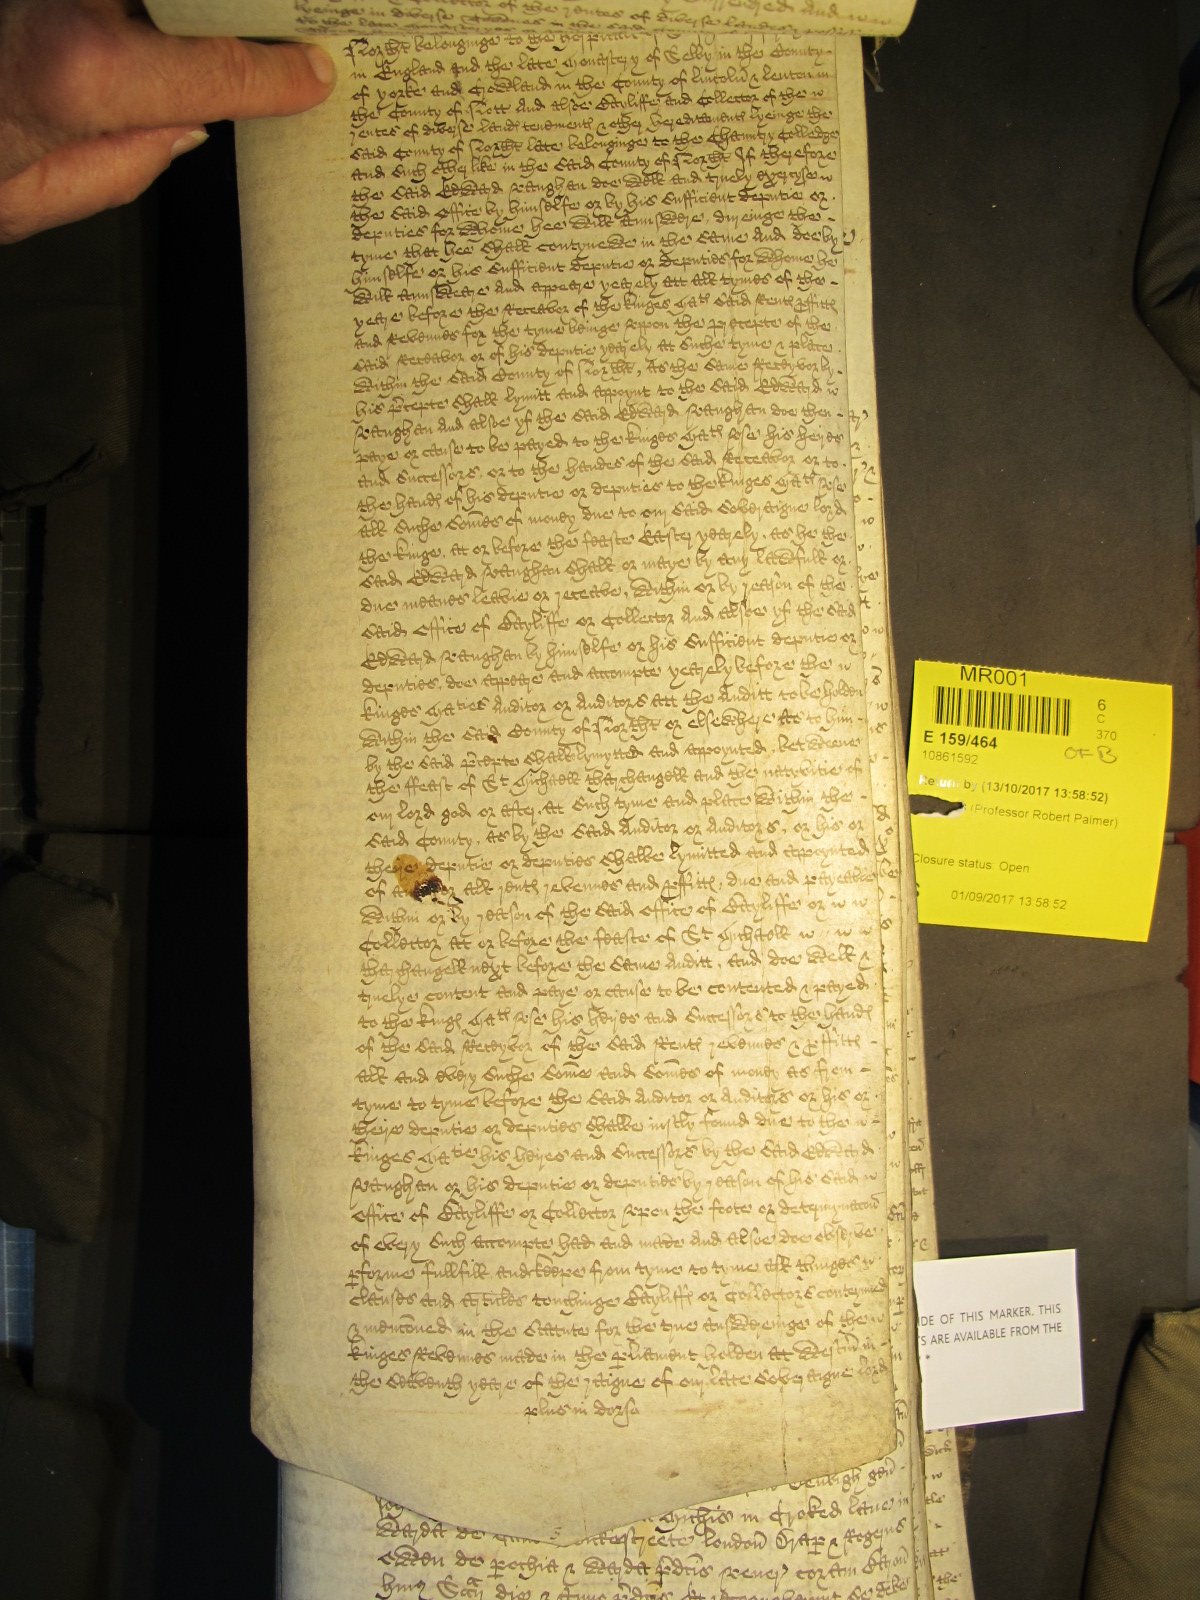 North belonginge to the hospitall
in England And the late Monastery of Selby in the County
of yorke and Crowland in the County of Lincoln & lenton in
the County of Nott And alsoe Baylliffe and Collector of the
rentes of diverse landes tenementes & other hereditamentes lyeinge the
said County of North late belonginge to the Chauntry Colledge
and Such other like in the said County of North If therefore
the said Edward Vaughan doe Well and truely exercyse
the said office by himselfe or by his Sufficient deputie or
deputies for Whome hee Will aunswere, duringe the
tyme that hee Shall contynewe in the same And doe by
himselfe or his Sufficient deputie or deputies for Whome he
Will aunsweare And appeare yearely att all tymes of the
yeare before the Receavor of the kinges Mates said Rentes pffittes
and Revenues for the tyme beinge Vppon the precepte of the
said Receavor or of his deputie yearely at Suche tyme & place
Within the said County of North, As the same Receyvor by
his precepte shall lymitt and appoynt to the said Edward
Vaughan And alsoe yf the said Edward Vaughan doe then
paye or cause to be payed to the kinges Mates Vse his heires
and Successors, or to the handes of the said Receavor or to
the handes of his deputie or deputies to the kinges Mates Vse
all Suche Somes of money due to our said Soveraigne lord
the kinge, at or before the feaste Easter yearely, as he the
said Edward Vaughan shall or maye by any lawfull or
due meanes leavie or receave, Within or by reason of the
said office of Baylliffe or Collector And alsoe yf the said
Edward Vaughan by himselfe or his Sufficient deputie or
deputies, doe appeare and accompte yearely before the
kinges Maties Auditor or Auditors att the Auditt to be holden
Within the said County of North or elsewhere As to him
by the said precepte shalbe lymytted and appoynted, betweene
the ffeast of St Michaell tharchangell and the natyvitie of
our lord god or after, at Such tyme and place Within the
said County, as by the said Auditor or Auditors, or his or
theire deputie or deputies shalbe lymitted and appoynted
of and for all rentes revenues and pffittes, due and payeable
Within or by reason of the said office of Baylliffe or
Collector at or before the feaste of St Michaell
tharchangell next before the same Auditt, and doe Well &
truelye content and paye or cause to be contented & payed
to the kinges Mates Vse his heires and Successors to the handes
of the said Receyvor of the said Rentes revenues & pffittes
all and every Suche Some and Somes of money as from
tyme to tyme before the said Auditor or Auditors or his or
theire deputie or deputies shalbe iustly found due to the
kinges Matie his heires and Successors by the said Edward
Vaughan or his deputie or deputies by reason of his said
office of Baylliffe or Collector Vpon the foote or determynacon
of every Such accompte had and made And alsoe doe observe
pforme fullfill and keepe from tyme to tyme all thinges
clauses and articles touchinge Baylliffes or Collectors conteyned
& mencioned in the Statute for the true aunsweringe of the
kinges Revenues made in the pliament holden at Westm in
the Seaventh yeare of the raigne of our late Soveraigne lord
plus in dorso
MR001
6
C
370
E 159/464
OF B
10861592
Return by (13/10/2017 13:58:52)
(Professor Robert Palmer)
Closure status: Open
01/09/2017 13:58:52
IDE OF THIS MARKER. THIS
S ARE AVAILABLE FROM THE
in Croked lane in
Warda de London